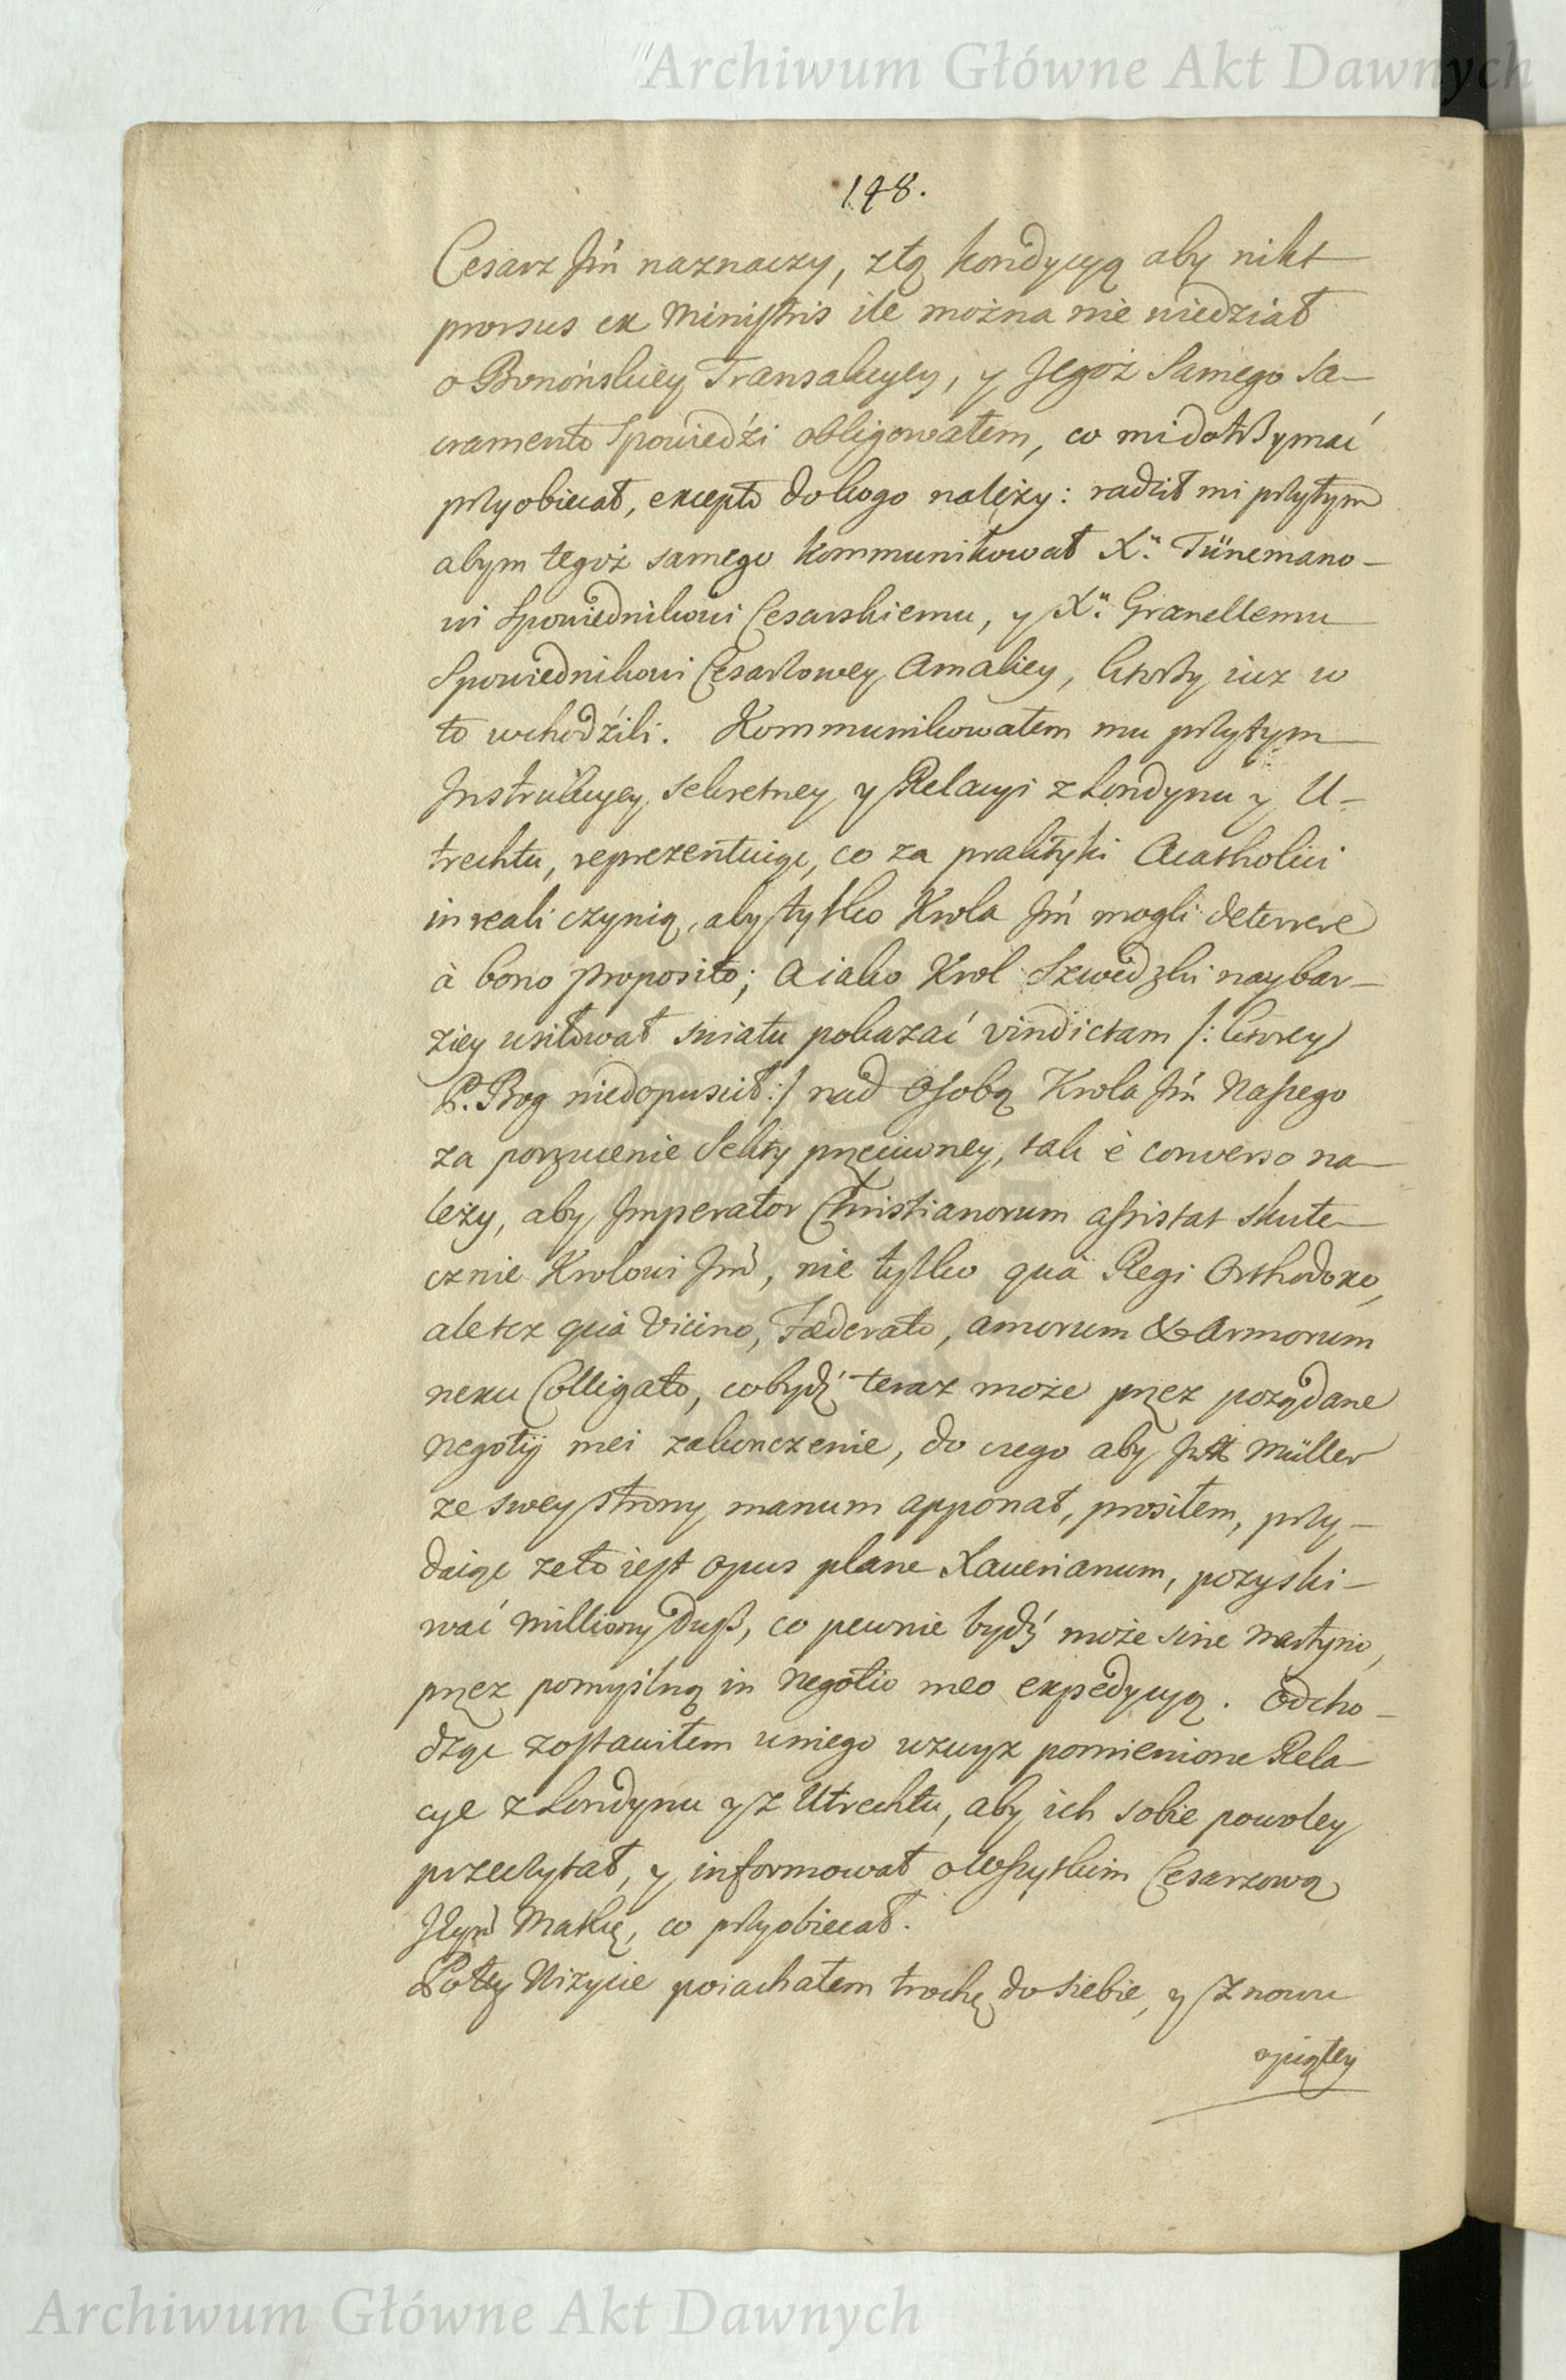 Archiwum Główne Akt Dawnych
148.
Cesarz Jm̃ naznaczy, ztą kondycyą aby nikt
prorsus ex Ministris ile można nie wiedział
o Bonońskiey Transakcyey, y Jegoż Samego Sa-
cramento Spowiedźi obligowałem, co mi dotrzymać
przyobiecał, excepto do kogo należy: radził mi przytym
abym tegoż samego kommunikował Xu. Tünemano-
wi Spowiednikowi Cesarskiemu, y Xu. Granellemu
Spowiednikowi Cesarzowey Amaliey, ktorzy iuz w
to wchodźili. Kommunikowałem mu przytym
Instrukcyey sekretney y Relacyi z Londynu y U-
trechtu, reprezentuiąc, co za praktyki Acatholici
in reali czynią, aby tylko Krola Jm̃ mogli deterrere
à bono proposito; a iako Krol Szwedzki naybar-
ziey usiłował swiatu pokazać vindictam /: ktorey
P. Bog niedopuscił :/ nad Osobą Krola Jm̃ Naszego
za porzucenie Sekty przeciwney, tak è converso na-
leży, aby Imperator Christianorum assistat skute-
cznie Krolowi Jm̃, nie tylko quà Regi Orthodoxo,
ale tez quà Vicino, Fæderato, amorum & Armorum
nexu Colligato, co bydź teraz może przez pożądane
negotij mei zakonczenie, do czego aby Müller
ze swey strony manum apponat, prosiłem, przy-
daiąc ze to iest opus plane Xaverianum, pozyski-
wać milliony Dusz, co pewnie bydź może sine Martyrio,
przez pomyslną in Negotio meo expedycyą. Odcho-
dząc zostawiłem u niego wzwyz pomienione Rela-
cye z Londynu y z Utrechtu, aby ich sobie powoley
przeczytał, y informował o wszytkim Cesarzową
Jeym̃ Matkę, co przyobiecał.
Po tey Wizycie poiachałem trochę do siebie, y znowu
opiątey
Archiwum Główne Akt Dawnych